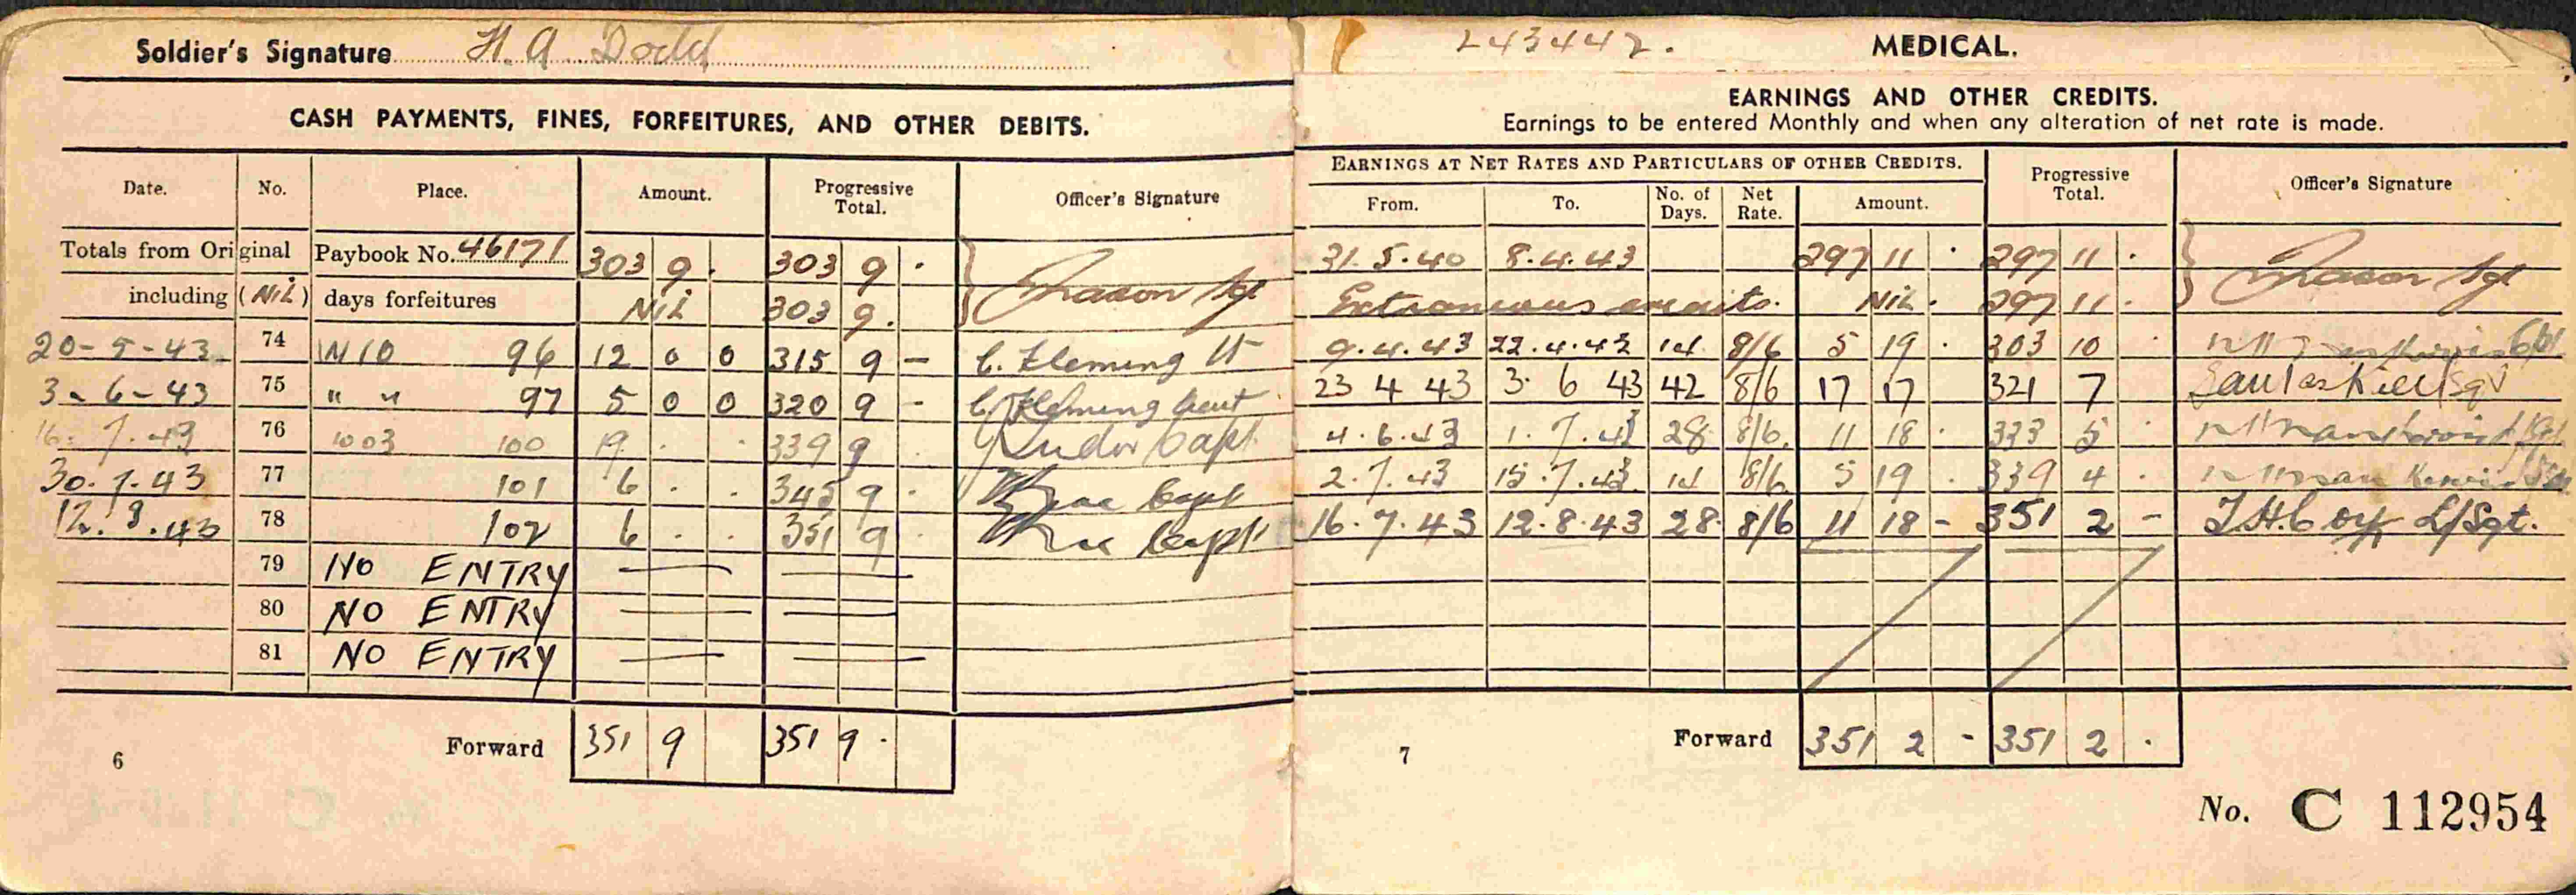 Soldier's Signature H. A. Dodd
CASH PAYMENTS, FINES, FORFEITURES, AND OTHER DEBITS.
Date. No. Place. Amount. Progressive Total. Officer's Signature
Totals from Original Paybook No. 46171 303 9 . 303 9 .
including (NiL) days forfeitures NiL 303 9 . Sgt
20-5-43 74 96 12 0 0 315 9 - C. Fleming Lt
3-6-43 75 " " 97 5 0 0 320 9 - C. Fleming Lieut
16.7.43 76 1003 100 19 . . 339 9 . Capt
30.7.43 77 101 6 . . 345 9 . Capt
12.8.43 78 102 6 . . 351 9 . Capt
79 NO ENTRY
80 NO ENTRY
81 NO ENTRY
Forward 351 9 351 9 .
6
243442. MEDICAL.
EARNINGS AND OTHER CREDITS.
Earnings to be entered Monthly and when any alteration of net rate is made.
EARNINGS AT NET RATES AND PARTICULARS OF OTHER CREDITS. Progressive Total. Officer's Signature
From. To. No. of Days. Net Rate. Amount.
31.5.40 8.4.43 297 11 . 297 11 .
Extraneous credits. NiL . 297 11 . Sgt
9.4.43 22.4.43 14 8/6 5 19 . 303 10 .
23 4 43 3 6 43 42 8/6 17 17 321 7
4.6.43 1.7.43 28 8/6 11 18 . 333 5 .
2.7.43 15.7.43 14 8/6 5 19 . 339 4 .
16.7.43 12.8.43 28 8/6 11 18 - 351 2 - L/Sgt.
Forward 351 2 - 351 2 .
7
No. C 112954